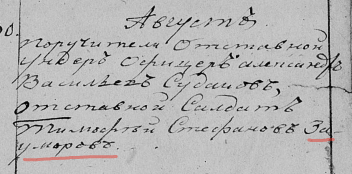 Августѣ
поручители Отставной
Ундеръ Офицеръ александръ
Васильевъ Судаковъ,
отставной Солдатъ
Тимофтьй Стефановъ За
умаровъ.